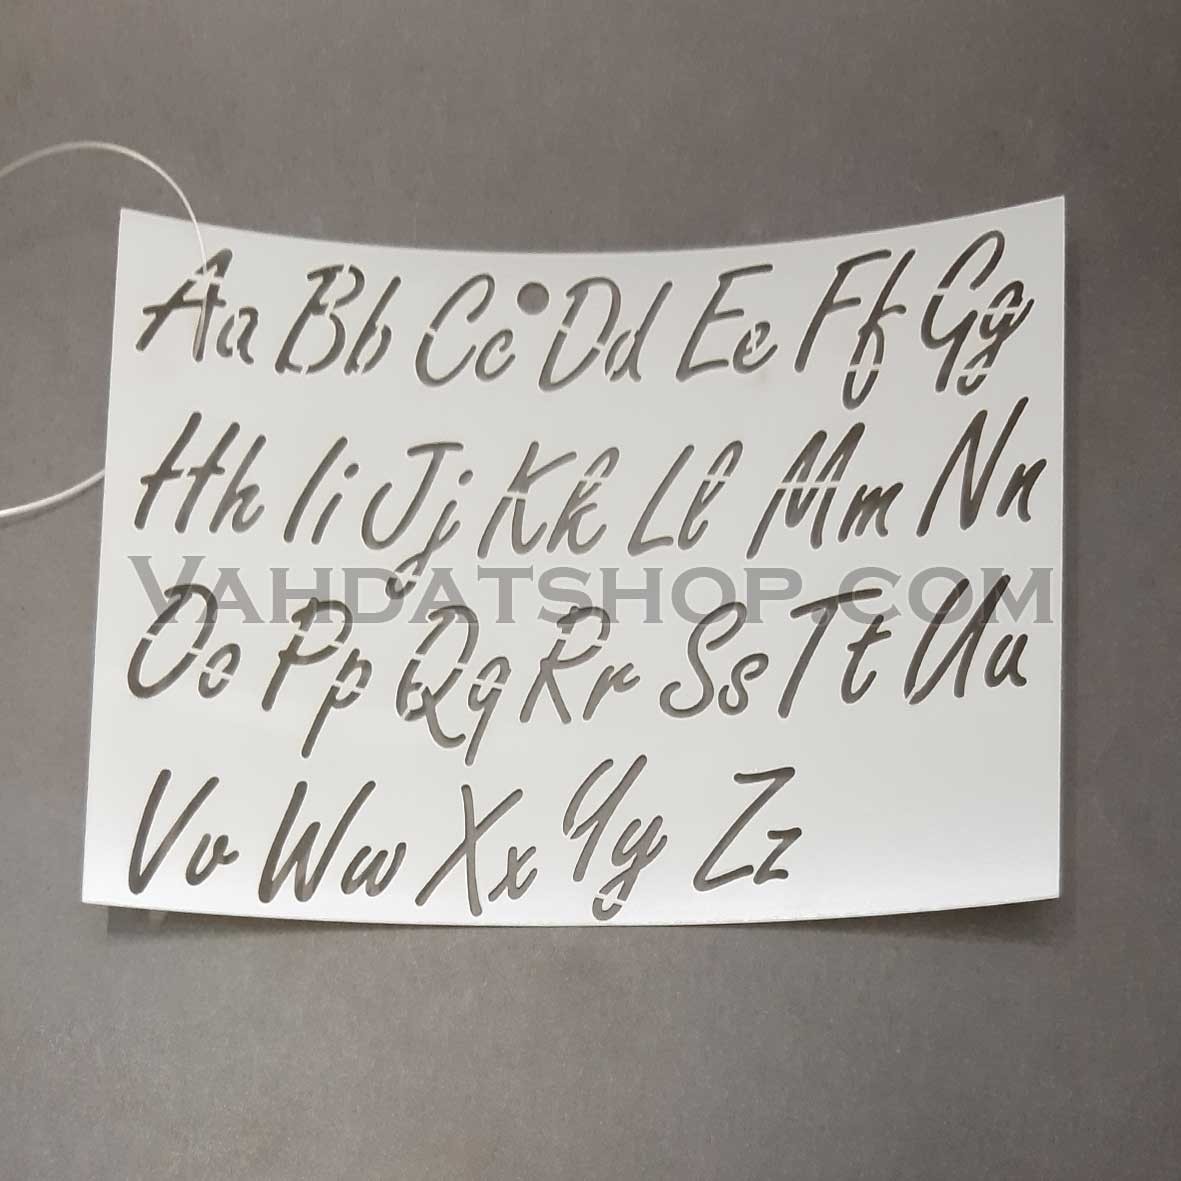 Aa Bb Cc Dd Ee Ff Gg
Hh Ii Jj Kk Ll Mm Nn
VAHDATSHOP.COM
Oo Pp Qq Rr Ss Tt Uu
Vv Ww Xx Yy Zz